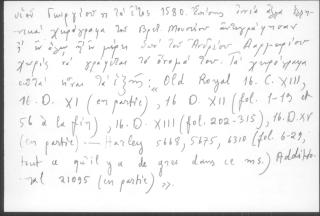 υἱὸν Γεωργίου π τὸ ἔτος 1580. Ἐπίσης ἐννέα ἄλλα ἑλλη-
νικὰ χειρόγραφα τοῦ Βρετ. Μουσείου ἀντεγράφησαν
ἢ ἐν ὅλῳ ἢ ἐν μέρει ὑπὸ τοῦ Ἀνδρέου Δαρμαρίου
χωρὶς νὰ γράφεται τὸ ὄνομά του. Τὰ χειρόγραφα
αὐτὰ εἶναι τὰ ἑξῆς: «Old Royal 16. C. XIII,
16. D. XI (en partie), 16 D. XII (fol. 1-19 et
56 à la fin), 16. D. XIII (fol. 202-315), 16. D. XV
(en partie) — Harley 5668, 5675, 6310 (fol. 6-29,
tout ce qu'il y a de grec dans ce ms.) Additio-
nal 21095 (en partie)».